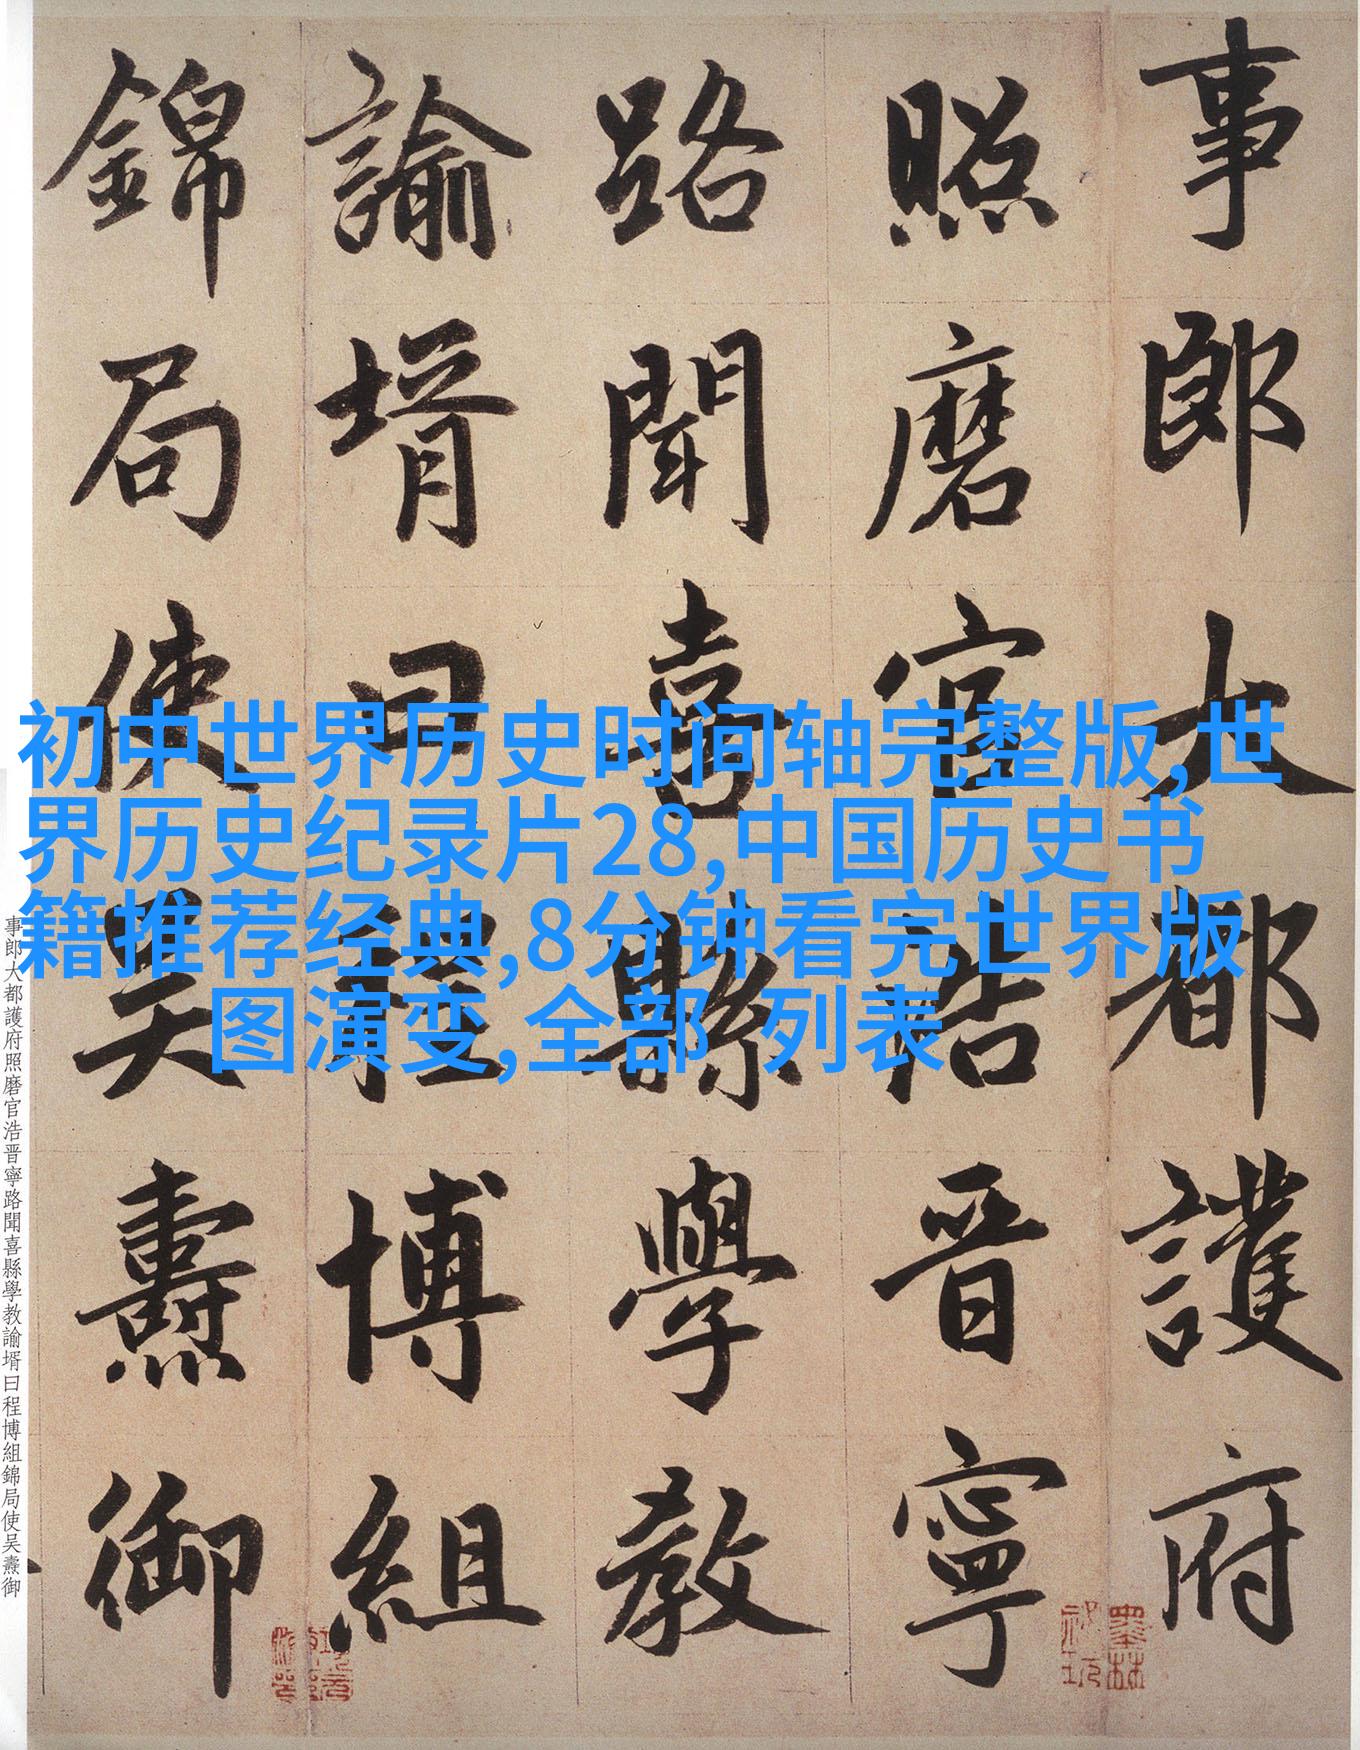 事郎大都護府
照磨官浩晋寧
路聞喜縣學教
諭壻曰程博組
錦局使吴燾御
初中世界历史时间轴完整版,世
界历史纪录片28,中国历史书
籍推荐经典,8分钟看完世界版
图演变,全部 列表
事郎大都護府照磨官浩晋寧路聞喜縣學教諭壻曰程博組錦局使吴燾御